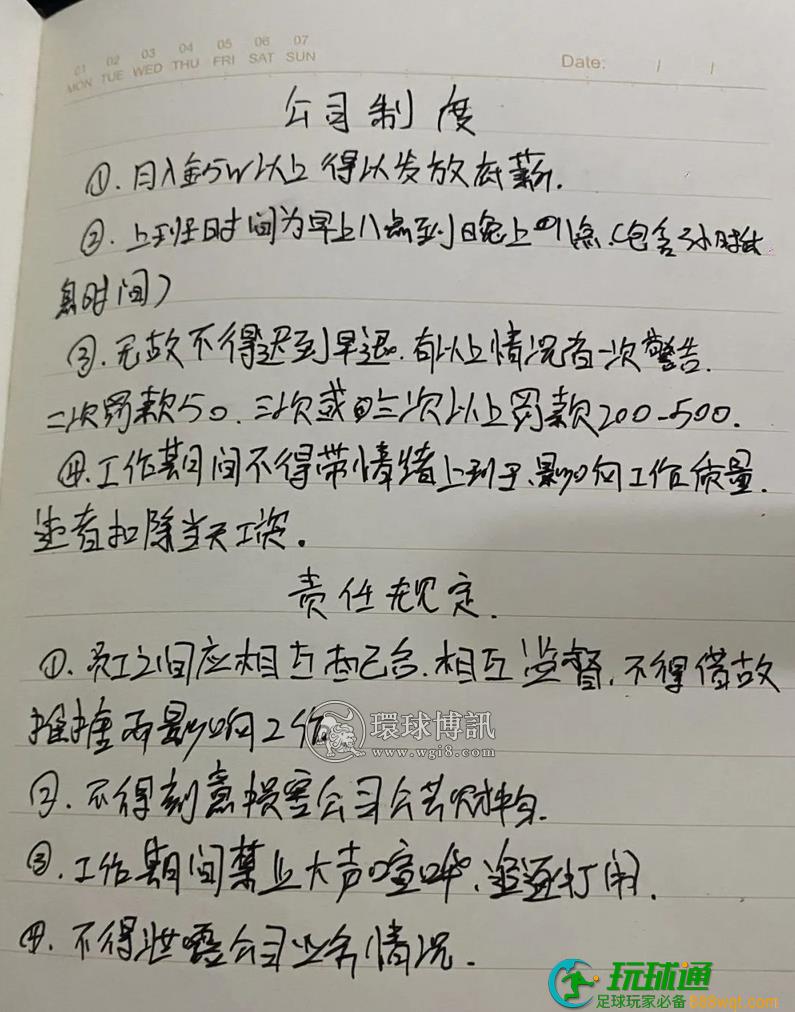 01 02 03 04 05 06 07
MON TUE WED THU FRI SAT SUN
Date: / /
公司制度
①.月入金5W以上得以发放底薪.
②.上班时间为早上八点到晚上八点(包含3小时休
息时间)
③.无故不得迟到早退.有以上情况者一次警告.
二次罚款50.三次或三次以上罚款200-500.
④.工作期间不得带情绪上班,影响工作质量.
违者扣除当天工资.
责任规定.
①.员工之间应相互配合.相互监督,不得借故
推搪而影响工作
環球博訊
www.wgi8.com
②.不得刻意损害公司公共财物.
③.工作期间禁止大声喧哗、追逐打闹.
④.不得泄露公司业务情况.
玩球通
足球玩家必备888wqt.com